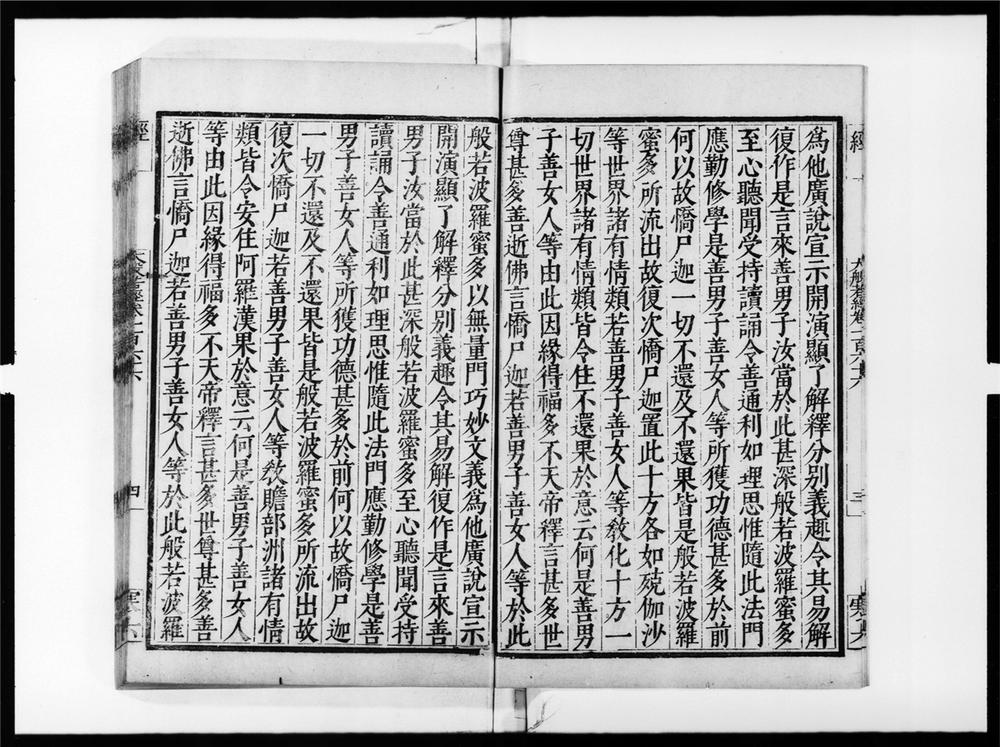 經
大般若經卷一百六十六
三
爲他廣說宣示開演顯了解釋分別義趣令其易解
復作是言來善男子汝當於此甚深般若波羅蜜多
至心聽聞受持讀誦令善通利如理思惟隨此法門
應勤修學是善男子善女人等所獲功德甚多於前
何以故憍尸迦一切不還及不還果皆是般若波羅
蜜多所流出故復次憍尸迦置此十方各如殑伽沙
等世界諸有情類若善男子善女人等敎化十方一
切世界諸有情類皆令住不還果於意云何是善男
子善女人等由此因緣得福多不天帝釋言甚多世
尊甚多善逝佛言憍尸迦若善男子善女人等於此
般若波羅蜜多以無量門巧妙文義爲他廣說宣示
開演顯了解釋分別義趣令其易解復作是言來善
男子汝當於此甚深般若波羅蜜多至心聽聞受持
讀誦令善通利如理思惟隨此法門應勤修學是善
男子善女人等所獲功德甚多於前何以故憍尸迦
一切不還及不還果皆是般若波羅蜜多所流出故
復次憍尸迦若善男子善女人等敎贍部洲諸有情
類皆令安住阿羅漢果於意云何是善男子善女人
等由此因緣得福多不天帝釋言甚多世尊甚多善
逝佛言憍尸迦若善男子善女人等於此般若波羅
經
大般若經卷一百六十六
四